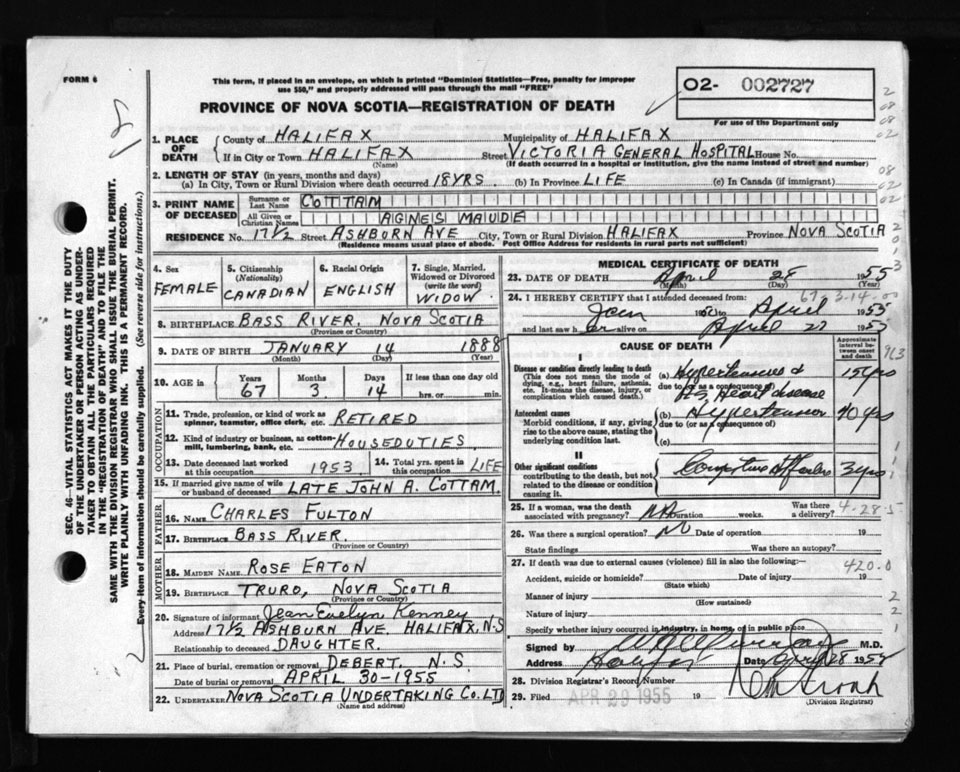 FORM 6
This form, if placed in an envelope, on which is printed "Dominion Statistics—Free, penalty for improper
use $50," and properly addressed will pass through the mail "FREE"
PROVINCE OF NOVA SCOTIA—REGISTRATION OF DEATH
02- 002727
For use of the Department only
SEC. 46—VITAL STATISTICS ACT MAKES IT THE DUTY
OF THE UNDERTAKER OR PERSON ACTING AS UNDER-
TAKER TO OBTAIN ALL THE PARTICULARS REQUIRED
IN THE "REGISTRATION OF DEATH" AND TO FILE THE
SAME WITH THE DIVISION REGISTRAR WHO SHALL ISSUE THE BURIAL PERMIT.
WRITE PLAINLY WITH UNFADING INK—THIS IS A PERMANENT RECORD.
Every item of information should be carefully supplied. (See reverse side for instructions.)
1. PLACE OF DEATH
County of HALIFAX Municipality of HALIFAX
If in City or Town HALIFAX Street VICTORIA GENERAL HOSPITAL House No.
(Name) (If death occurred in a hospital or institution, give the name instead of street and number)
2. LENGTH OF STAY (in years, months and days)
(a) In City, Town or Rural Division where death occurred 18 YRS. (b) In Province LIFE (c) In Canada (if immigrant)
3. PRINT NAME OF DECEASED
Surname or Last Name COTTAM
All Given or Christian Names AGNES MAUDE
RESIDENCE No. 17 1/2 Street ASHBORN AVE City, Town or Rural Division HALIFAX Province NOVA SCOTIA
(Residence means usual place of abode. Post Office Address for residents in rural parts not sufficient)
4. Sex FEMALE
5. Citizenship (Nationality) CANADIAN
6. Racial Origin ENGLISH
7. Single, Married, Widowed or Divorced (write the word) WIDOW
8. BIRTHPLACE BASS RIVER, NOVA SCOTIA
(Province or Country)
9. DATE OF BIRTH JANUARY 14 1888
(Month) (Day) (Year)
10. AGE in Years 67 Months 3 Days 14 If less than one day old
hrs. or min.
OCCUPATION
11. Trade, profession, or kind of work as spinner, teamster, office clerk, etc. RETIRED
12. Kind of industry or business, as cotton-mill, lumbering, bank, etc. HOUSEDUTIES
13. Date deceased last worked at this occupation 1953 14. Total yrs. spent in this occupation LIFE
15. If married give name of wife or husband of deceased LATE JOHN A. COTTAM
FATHER
16. NAME CHARLES FULTON
17. BIRTHPLACE BASS RIVER.
(Province or Country)
MOTHER
18. MAIDEN NAME ROSE EATON
19. BIRTHPLACE TRURO, NOVA SCOTIA
(Province or Country)
20. Signature of informant Jean Evelyn Kenney
Address 17 1/2 ASHBURN AVE. HALIFAX, N.S
Relationship to deceased DAUGHTER.
21. Place of burial, cremation or removal DEBERT, N.S.
Date of burial or removal APRIL 30-1955
22. UNDERTAKER NOVA SCOTIA UNDERTAKING CO. LTD
(Name and address)
MEDICAL CERTIFICATE OF DEATH
23. DATE OF DEATH April 28 1955
(Month) (Day) (Year)
24. I HEREBY CERTIFY that I attended deceased from:
Jan 19 to April 1955
and last saw her alive on April 27 1955
CAUSE OF DEATH
Approximate interval between onset and death
I
Disease or condition directly leading to death
(This does not mean the mode of dying, e.g., heart failure, asthenia, etc. It means the disease, injury, or complication which caused death.)
(a) Hypertensive &
due to (or as a consequence of)
H.S. Heart disease 15 yrs
Antecedent causes
Morbid conditions, if any, giving rise to the above cause, stating the underlying condition last.
(b) Hypertension 20 yrs
due to (or as a consequence of)
(c)
II
Other significant conditions
contributing to the death, but not related to the disease or condition causing it.
Congestive 3 yrs
25. If a woman, was the death associated with pregnancy? Duration weeks. Was there a delivery?
4-28-5
26. Was there a surgical operation? No Date of operation 19
State findings Was there an autopsy?
27. If death was due to external causes (violence) fill in also the following:—
420.0
Accident, suicide or homicide? Date of injury 19
(State which)
Manner of injury
(How sustained)
Nature of injury
Specify whether injury occurred in industry, in home, or in public place
Signed by M.D.
Address Halifax Date April 28 1955
28. Division Registrar's Record No.
29. Filed APR 29 1955 19
(Division Registrar)